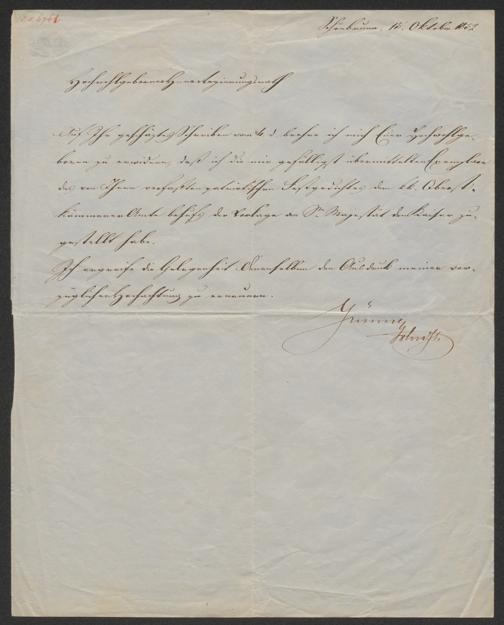 Schönbrunn, 15. Oktober 185
Hochwohlgeborner Herr Regierungsrath
Auf Ihr geschätztes Schreiben vom d. beehre ich mich Euer Hochwohlge-
boren zu erwidern, daß ich die mir gefälligst übermittelten Exemplare
des von Ihnen verfaßten patriotischen Festgedichtes dem kk. Oberst-
kämmerer Amte behufs der Vorlage an Se. Majestät den Kaiser zu-
gestellt habe.
Ich ergreife die Gelegenheit Denenselben den Ausdruck meiner vor-
züglichen Hochachtung zu erneuern.
Grünne